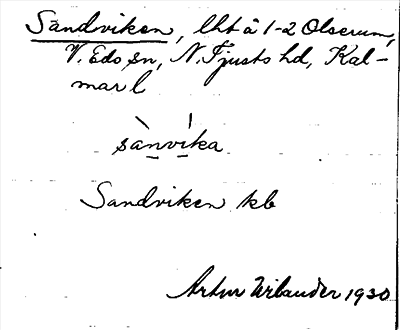 Sandviken, lht å 1-2 Olserum,
V. Edo sn, N. Tjusts hd, Kal-
mar l
sànvíka
Sandviken kb
Artur Wilander 1930